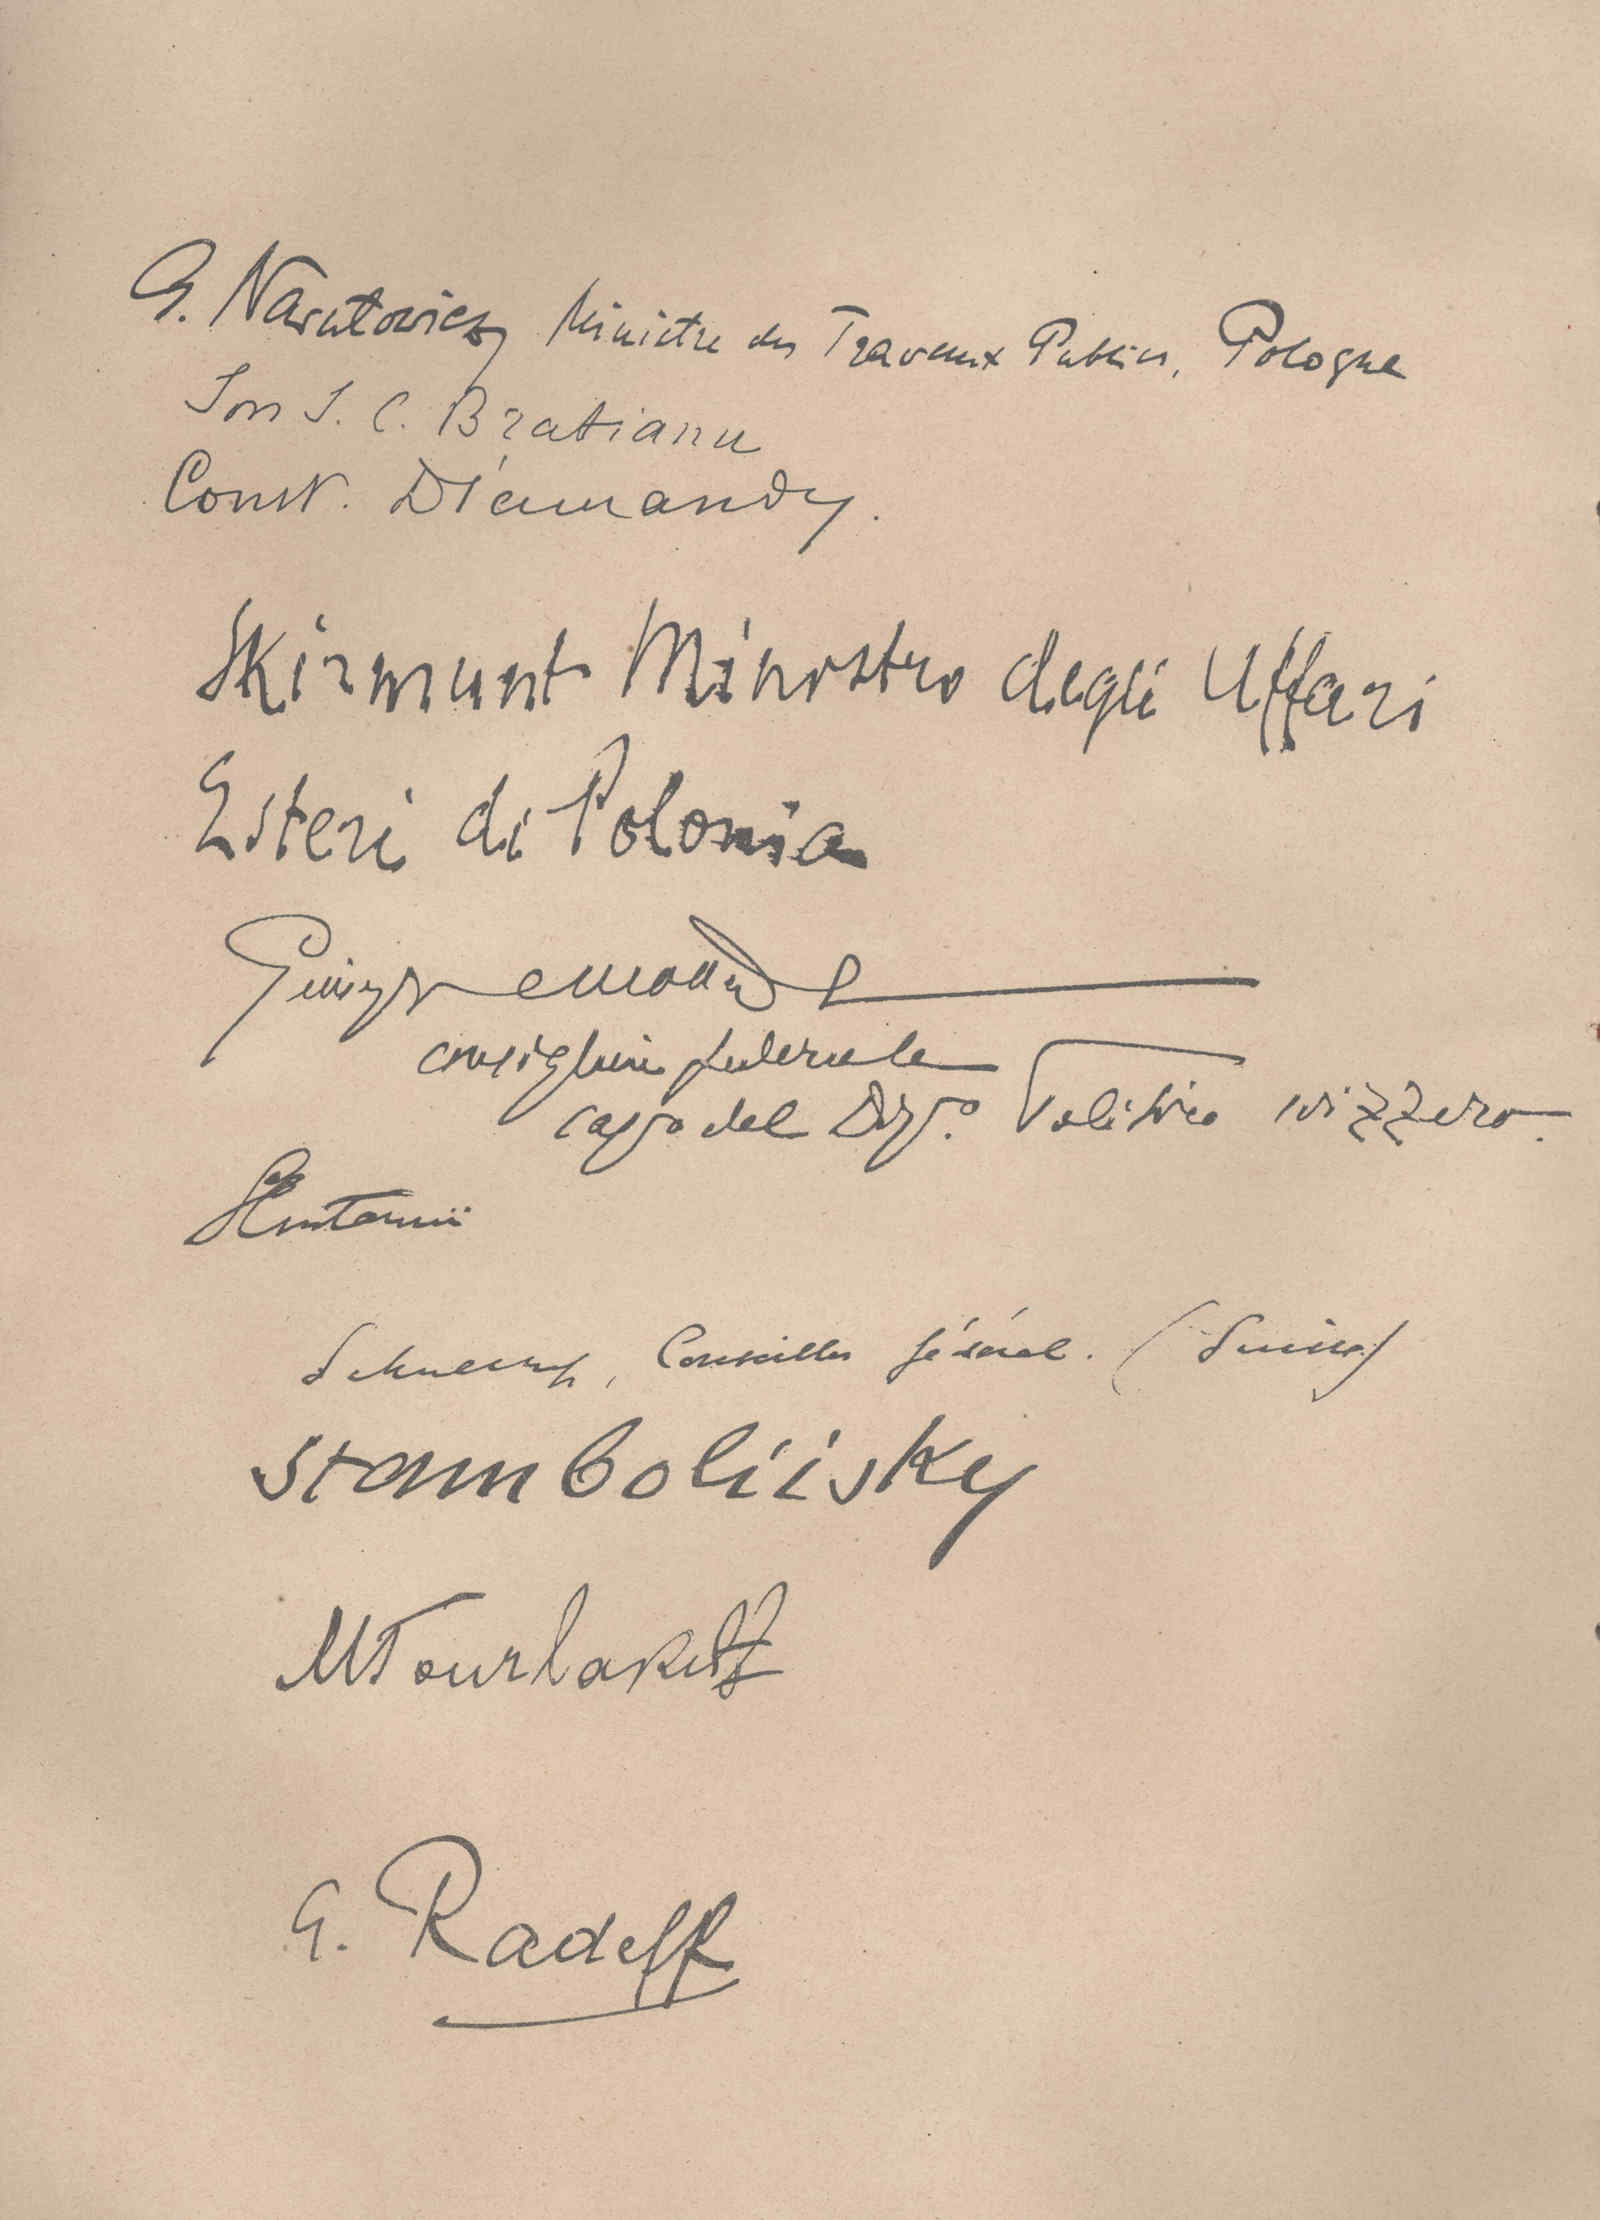 G. Narutowicz Ministre des Travaux Publics, Pologne
Ion I. C. Bratianu
Const. Diamandy.
Skirmunt Ministro degli Affari
Esteri di Polonia
Giuseppe Motta
consigliere federale
capo del Dip.o Politico svizzero.
Schulthess, Conseiller fédéral. (Suisse)
Stamboliisky
MTourlakoff
G. Radeff